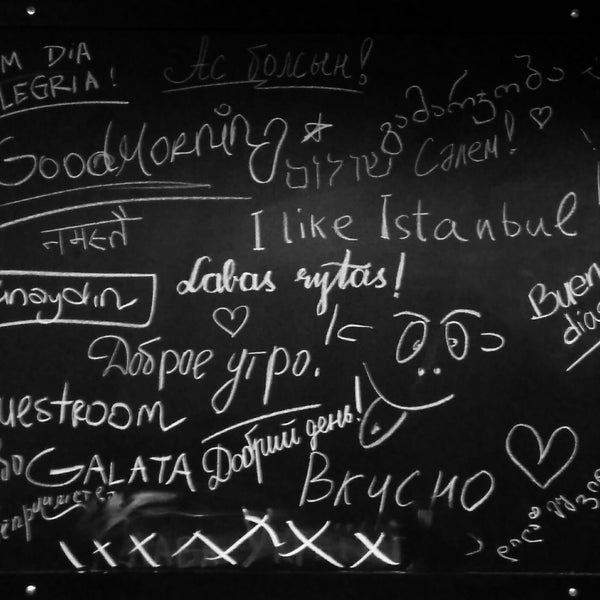 M DiA
LEGRIA!
Ас болсын!
გამარჯობა
GOODMORNING
שלום
Сәлем!
नमस्ते
I like Istanbul
naydın
Labas rytas!
Buen
dias
Доброе утро.
UESTROOM
GALATA
Добрий день!
Вкусно
დილა